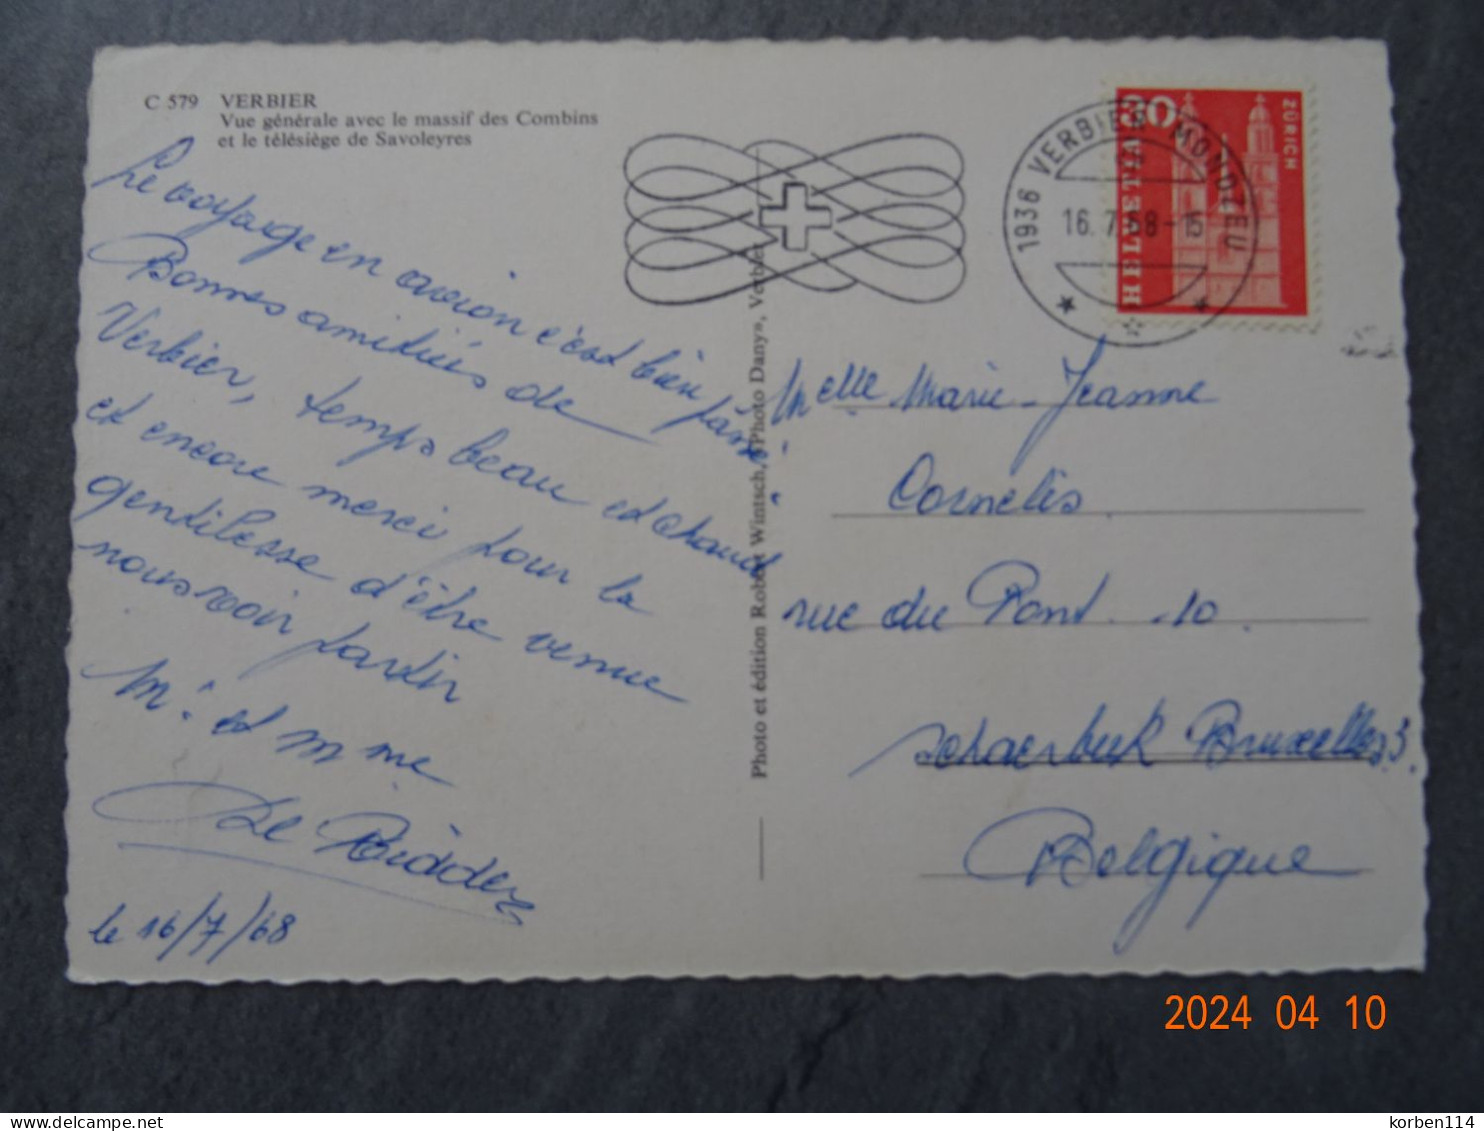 C 579 VERBIER
Vue générale avec le massif des Combins
et le télésiège de Savoleyres
Le voyage en avion c'est bien passé.
Bonnes amitiés de
Verbier, temps beau et chaud
et encore merci pour la
gentilesse d'être venue
nous voir partir
Mr. et Mme
De Ridder
le 16/7/68
Photo et édition Robert Wintsch, «Photo Dany», Verbier
1936 VERBIER MONDZEU
16.7.68-15
30
HELVETIA
ZÜRICH
Melle Marie-Jeanne
Cornelis
rue du Pont 10
Schaerbeek Bruxelles 3.
Belgique
2024 04 10
korben114